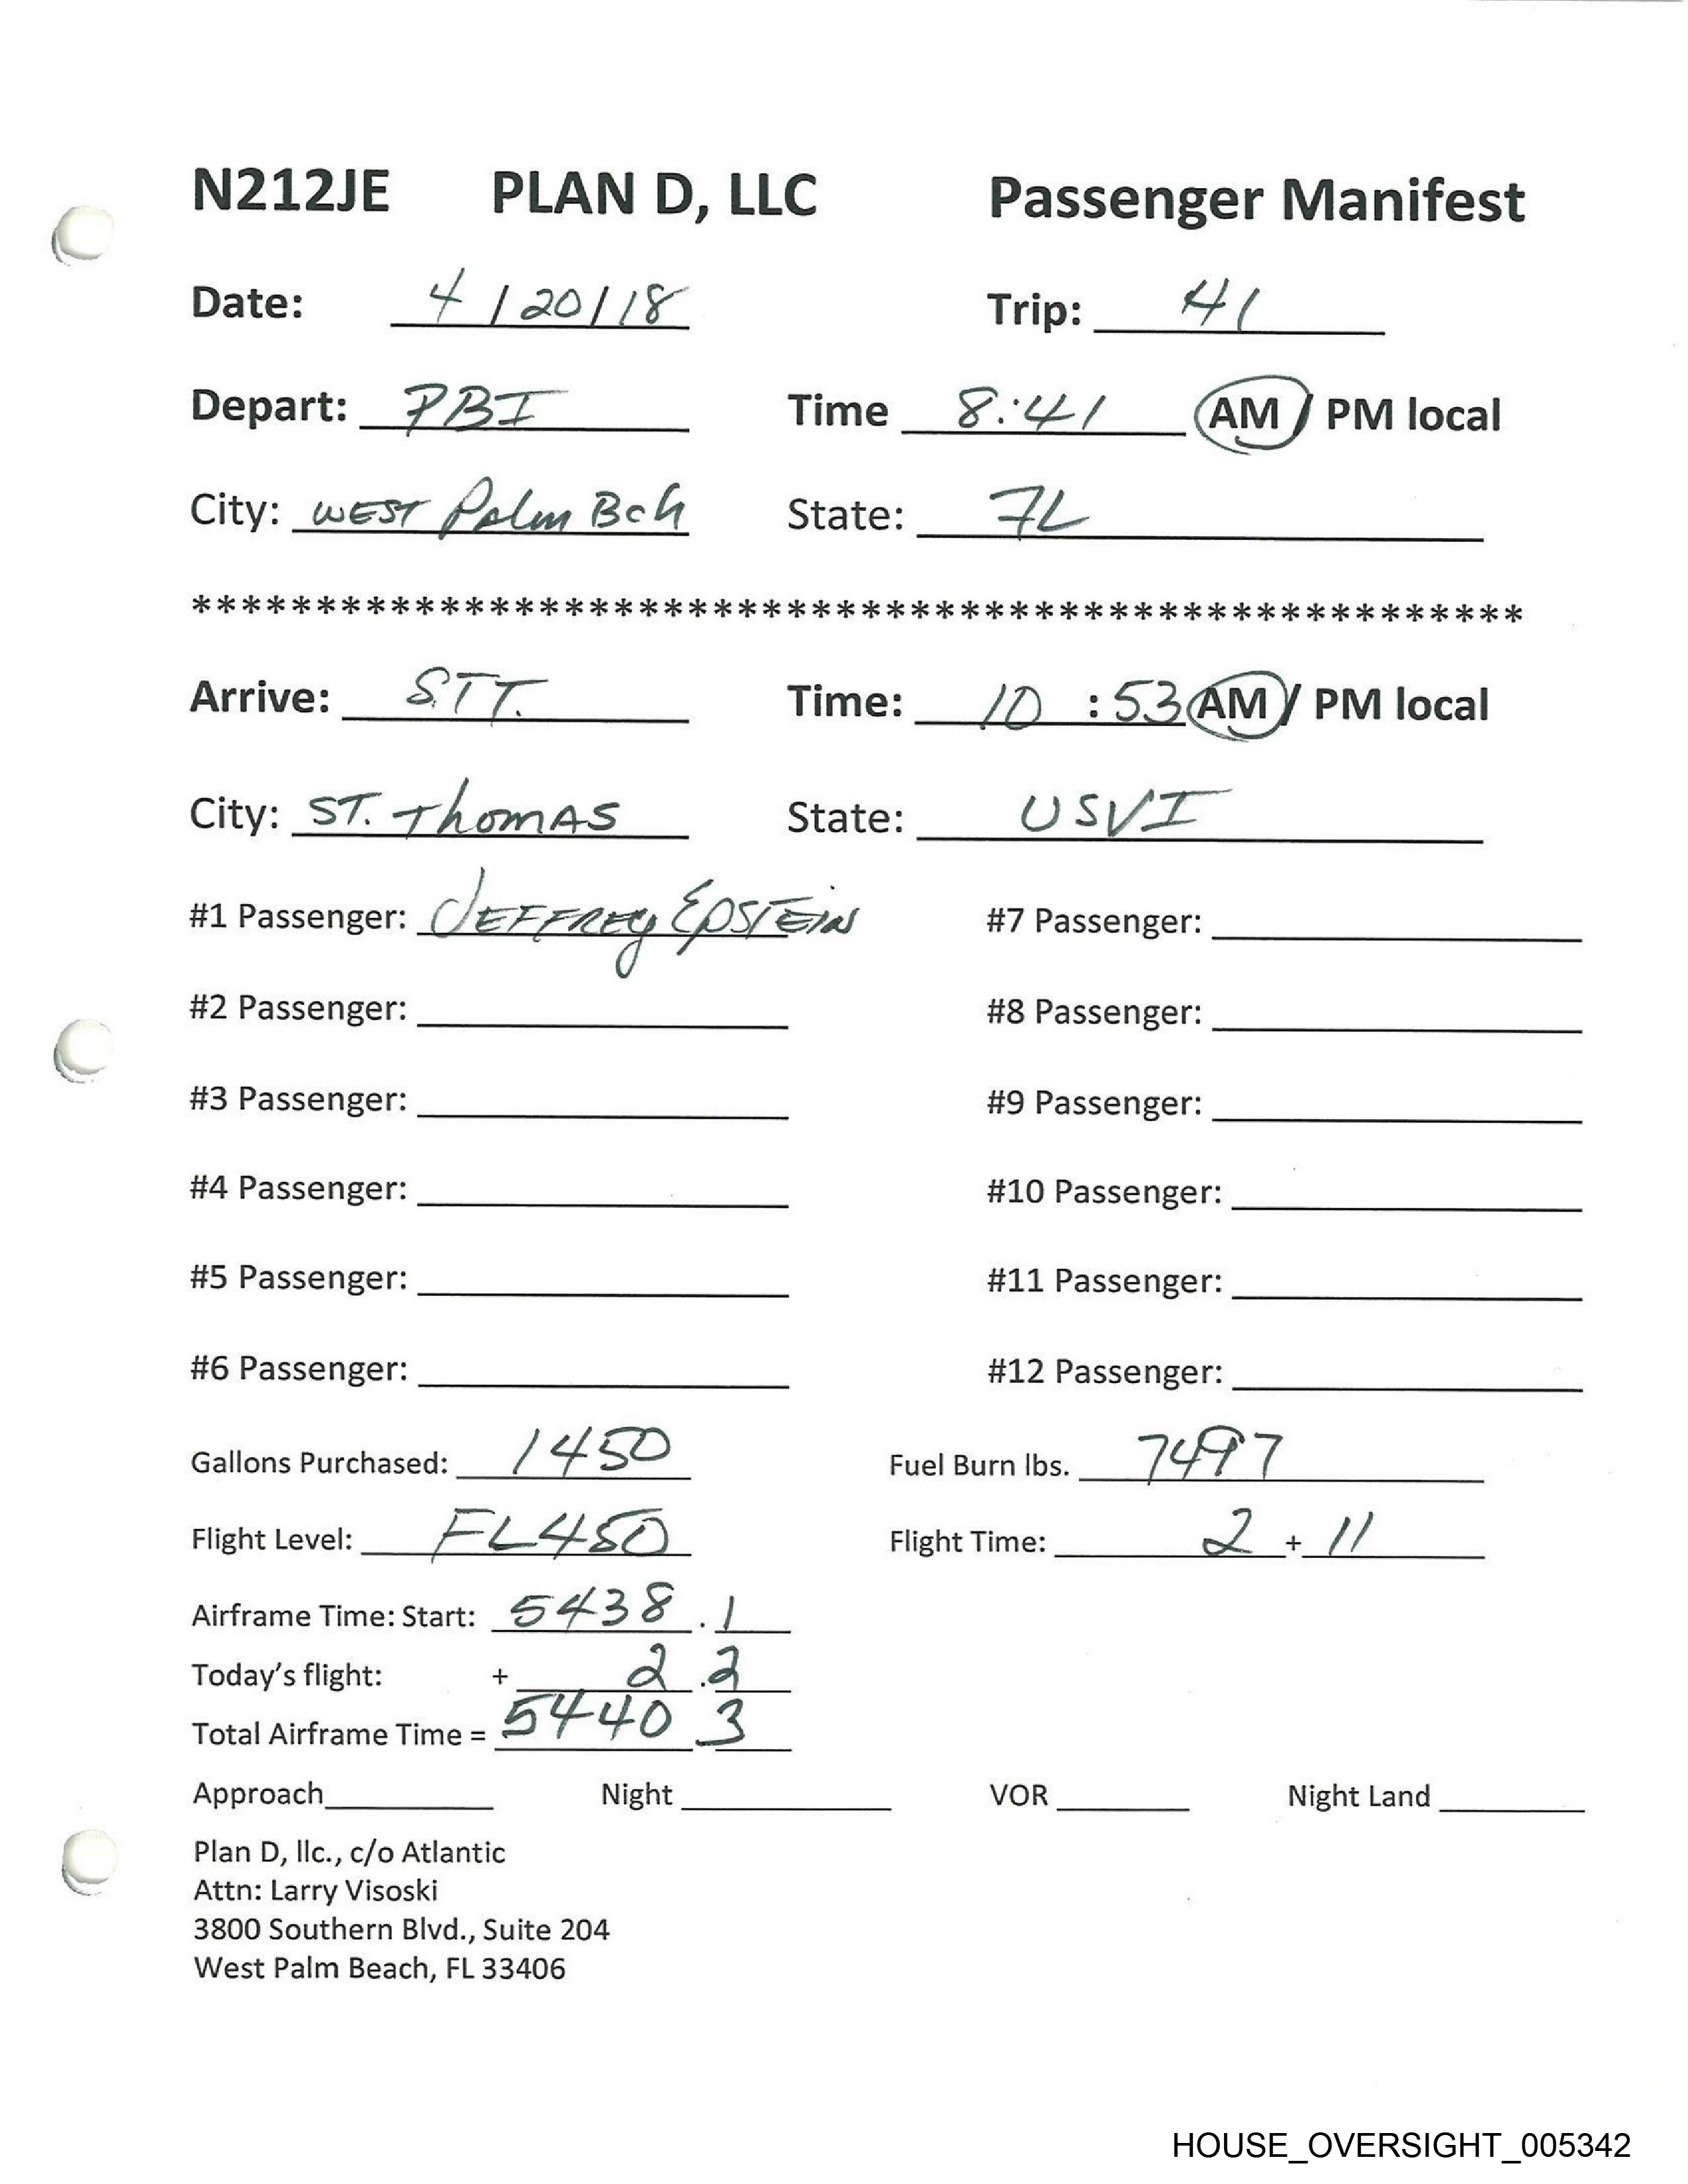 N212JE PLAN D, LLC Passenger Manifest
Date: 4/20/18 Trip: 41
Depart: PBI Time 8:41 AM / PM local
City: WEST Palm Bch State: FL
******************************************************
Arrive: STT. Time: 10 : 53 AM / PM local
City: ST. ThomAS State: USVI
#1 Passenger: JEFFREy EpSTEIN #7 Passenger:
#2 Passenger: #8 Passenger:
#3 Passenger: #9 Passenger:
#4 Passenger: #10 Passenger:
#5 Passenger: #11 Passenger:
#6 Passenger: #12 Passenger:
Gallons Purchased: 1450 Fuel Burn lbs. 7497
Flight Level: FL450 Flight Time: 2 + 11
Airframe Time: Start: 5438 . 1
Today's flight: + 2 . 2
Total Airframe Time = 5440 . 3
Approach Night VOR Night Land
Plan D, llc., c/o Atlantic
Attn: Larry Visoski
3800 Southern Blvd., Suite 204
West Palm Beach, FL 33406
HOUSE_OVERSIGHT_005342